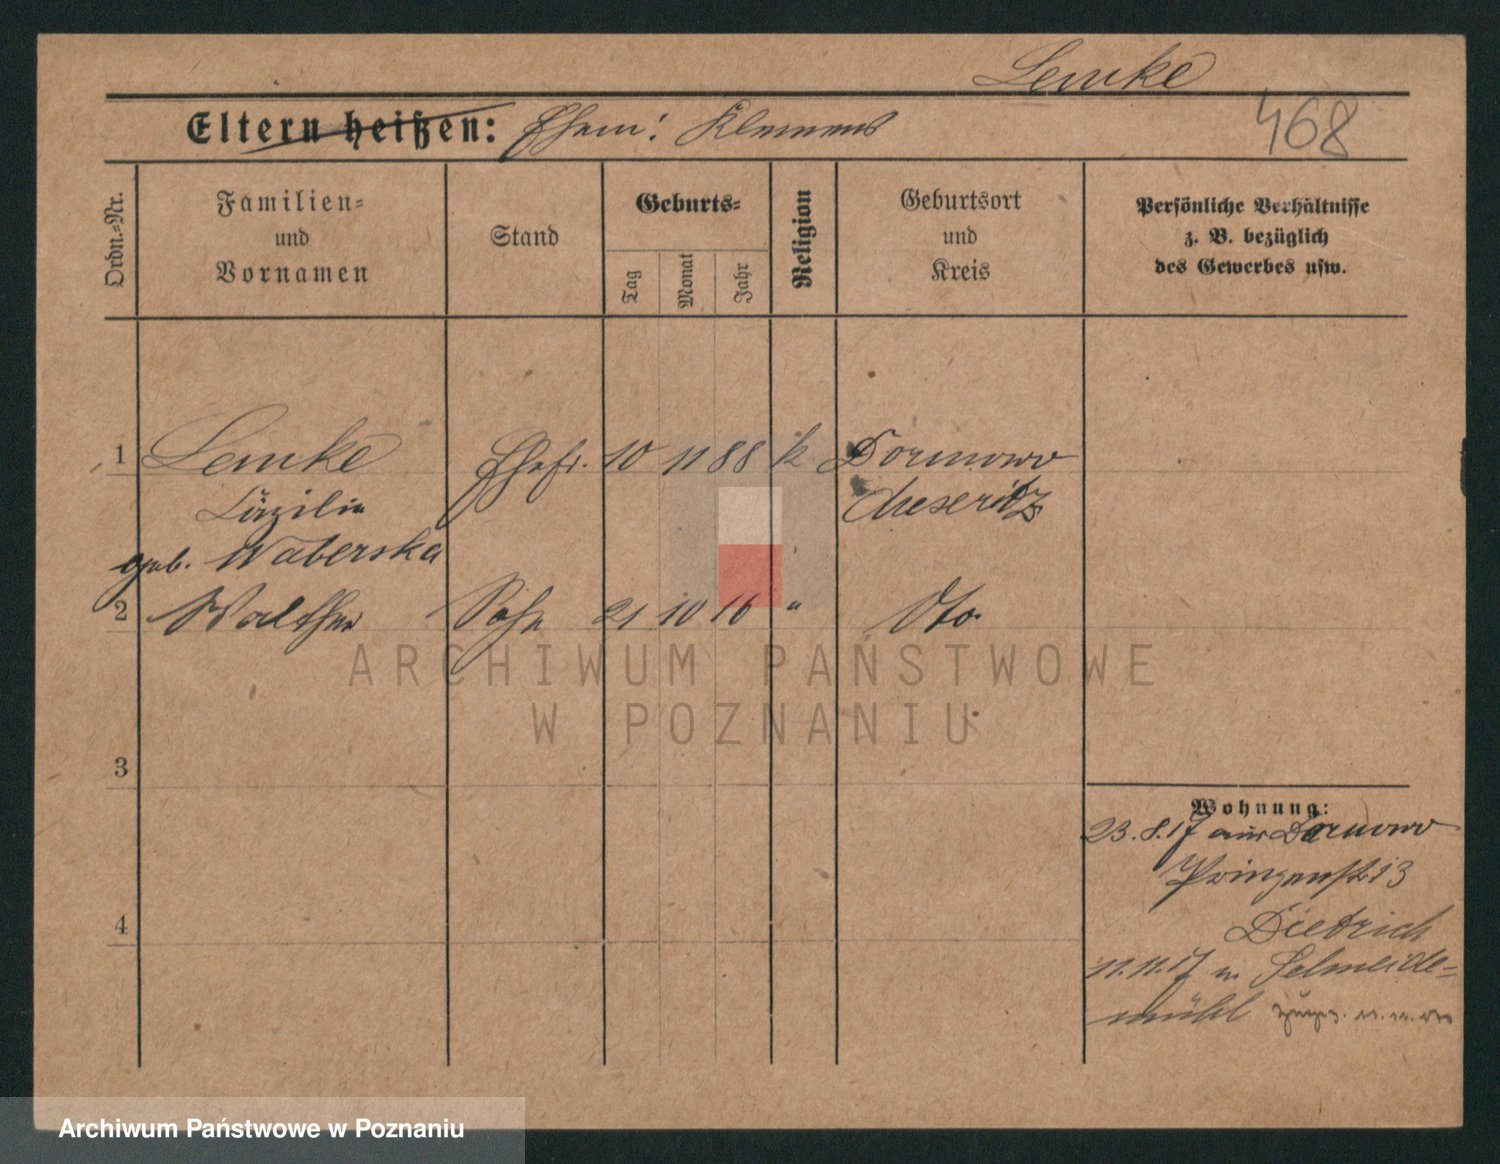 Lemke
468
Eltern heißen: Ehem: Klemens
Ordn.-Nr.
Familien- und Vornamen
Stand
Geburts-
Tag
Monat
Jahr
Religion
Geburtsort und Kreis
Persönliche Verhältnisse
z. B. bezüglich
des Gewerbes usw.
1 Lemke Ehefr. 10 11 88 k Dormowo
Cäzilie Meseritz
geb. Waberska
2 Walther Sohn 21 10 16 " Dto.
ARCHIWUM PAŃSTWOWE
W POZNANIU
3
Wohnung:
23.8.17 aus Dormowo
Prinzenstr 13
4
Dietrich
11.11.17 n Schneide-
mühl
Archiwum Państwowe w Poznaniu